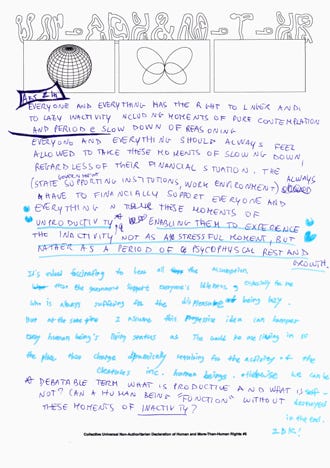 ART 2/14
EVERYONE AND EVERYTHING HAS THE RIGHT TO LINGER AND
TO LAZY INACTIVITY INCLUDING MOMENTS OF PURE CONTEMPLATION
AND PERIOD SLOW DOWN OF REASONING
EVERYONE AND EVERYTHING SHOULD ALWAYS FEEL
ALLOWED TO TAKE THESE MOMENTS OF SLOWING DOWN,
REGARDLESS OF THEIR FINANCIAL SITUATION. THE
GOVERNMENT ALWAYS
(STATE SUPPORTING INSTITUTIONS, WORK ENVIRONMENT)
HAVE TO FINANCIALLY SUPPORT EVERYONE AND
EVERYTHING IN THEIR THESE MOMENTS OF
UNPRODUCTIVITY * ENABLING THEM TO EXPERIENCE
THE INACTIVITY NOT AS A STRESSFUL MOMENT, BUT
RATHER AS A PERIOD OF PSYCOPHYSICAL REST AND
GROWTH.
It's indeed fascinating to hear all the assumption
that the government support everyone's laziness, especially for me
who is always suffering for the of being lazy.
But at the same time I assume this progressive idea can hamper
every human being's living as The world we are living in is
the place that change dynamically for the activity of the
creatures inc. human beings. otherwise we can be
self-
destroyed
in the end.
IDK!
* DEBATABLE TERM WHAT IS PRODUCTIVE AND WHAT IS
NOT? CAN A HUMAN BEING "FUNCTION" WITHOUT
THESE MOMENTS OF INACTIVITY?
Collective Universal Non-Authoritarian Declaration of Human and More-Than-Human Rights #6